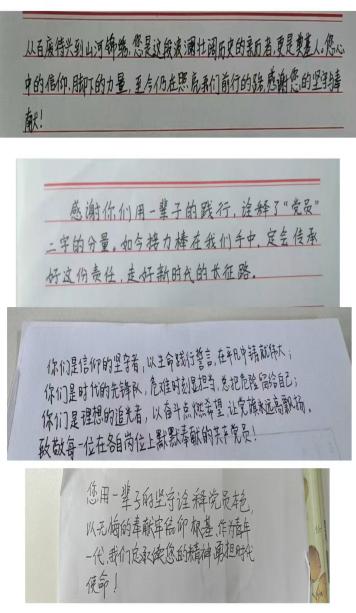 从百废待兴到山河锦绣,您是这段波澜壮阔历史的亲历者,更是奠基人。您心
中的信仰、脚下的力量,至今仍在照亮我们前行的路。感谢您的坚守与奉
献!
感谢你们用一辈子的践行,诠释了“党员”
二字的分量。如今接力棒在我们手中,定会传承
好这份责任,走好新时代的长征路。
你们是信仰的坚守者,以生命践行誓言,在平凡中铸就伟大;
你们是时代的先锋队,危难时刻显担当,总把危险留给自己;
你们是理想的追光者,以奋斗点燃希望,让党旗永远高飘扬。
致敬每一位在各自岗位上默默奉献的共产党员!
您用一辈子的坚守诠释党员本色,
以无悔的奉献牢信仰根基,作为青年
一代,我们定承续您的精神,勇担时代
使命!